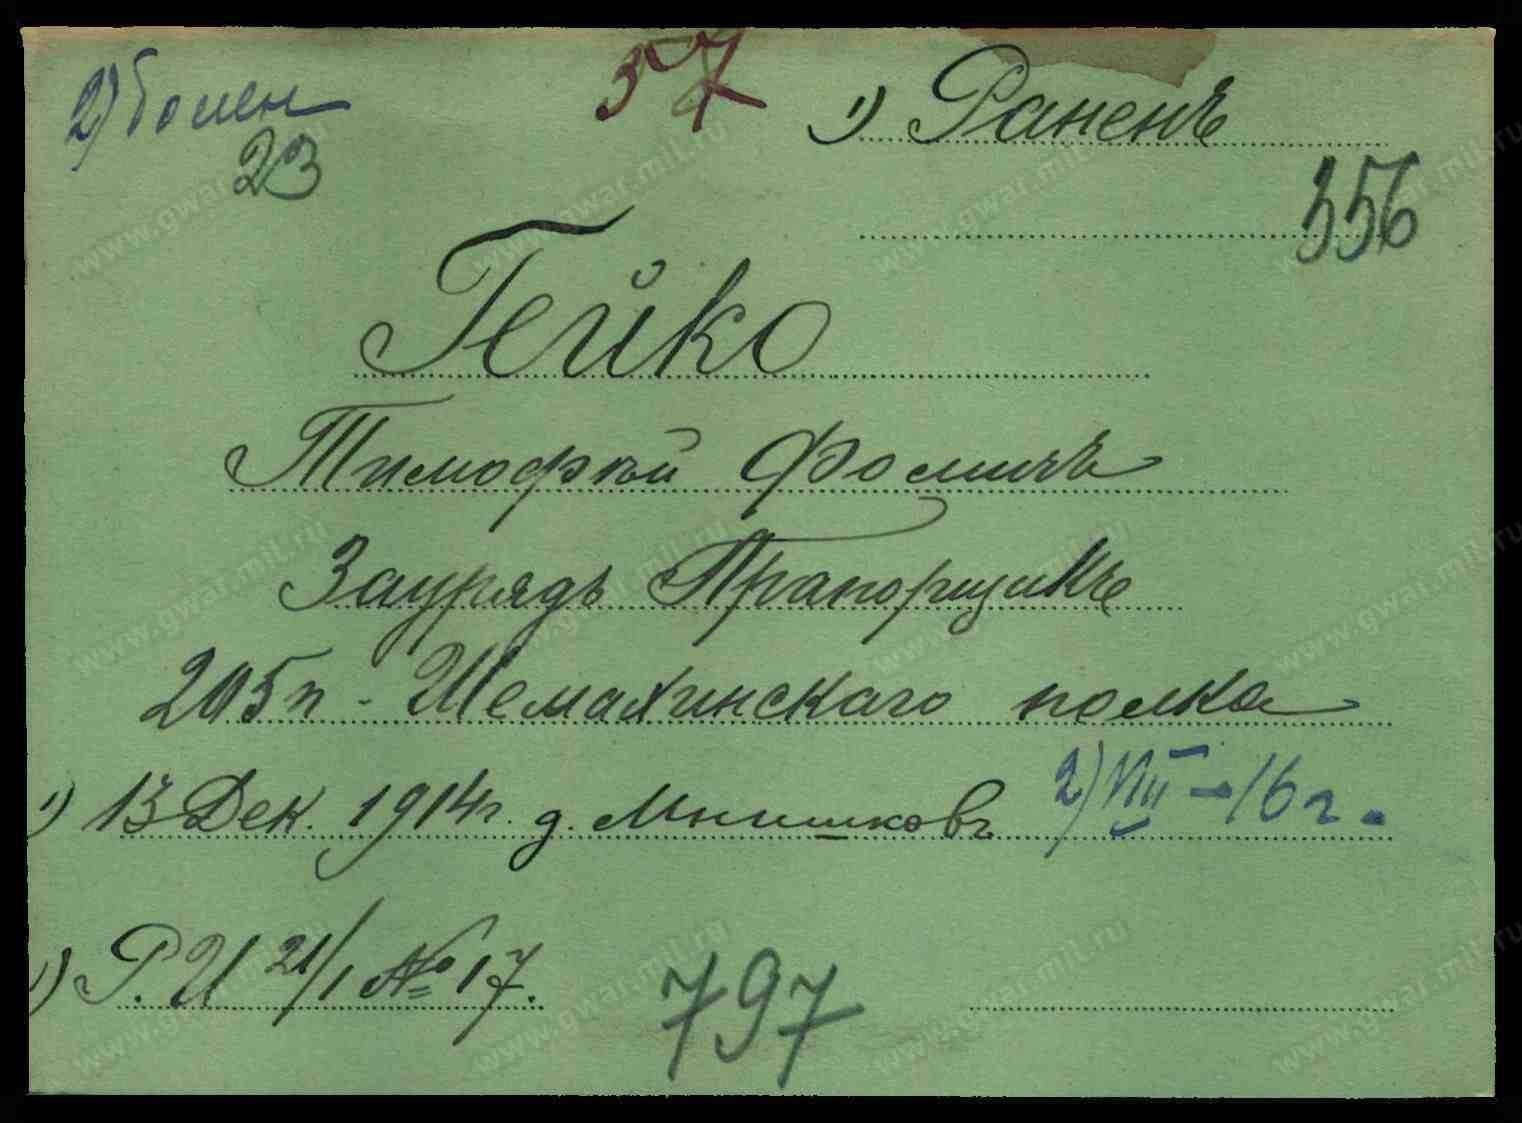 2) болен
57
1) Раненъ
23
356
Гейко
Тимофѣй Фомичъ
Заурядъ Прапорщикъ
205 п - Шемахинскаго полка
1) 13 Дек. 1914 г. д. Мнишковъ 2) VIII - 16 г.
1) Р. И 21/1 № 17.
797
www.gwar.mil.ru